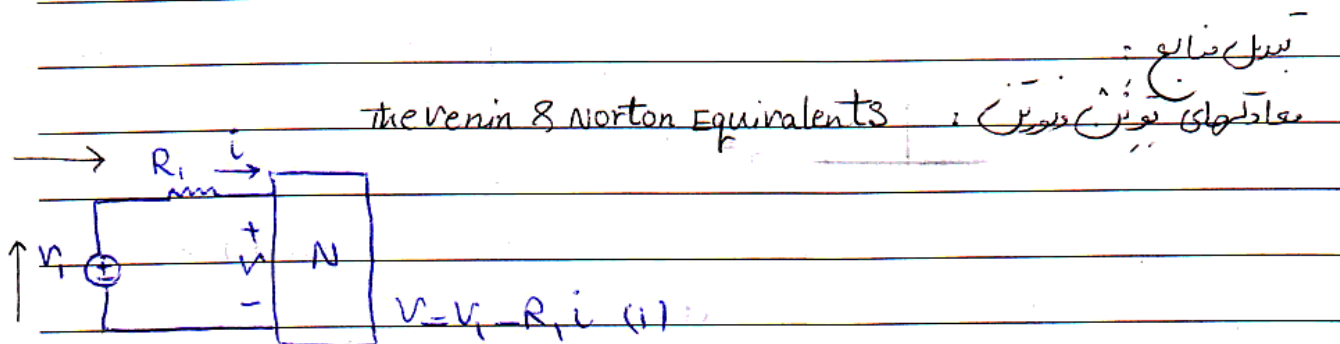 تبدیل منابع :
معادلهای تونن و نورتن : Thevenin & Norton Equivalents
R₁ i
V₁ + V - N
V = V₁ - R₁ i (1)